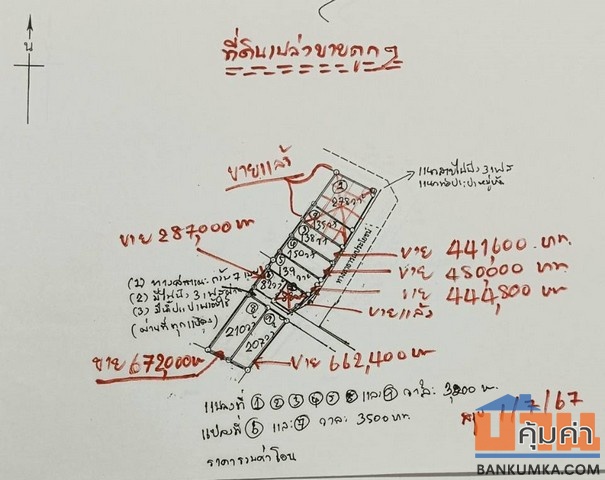 น
ที่ดินเปล่าขายถูกๆ
แนวสายไฟฟ้า 3 เฟส
ขายแล้ว
① 278 ว
② 135 ว
③ 138 ว
④ 150 ว
⑤ 139 ว
⑥ 82 ว
ทางสาธารณประโยชน์
ขาย 287,000 บาท
ขาย 441,600 บาท.
ขาย 480,000 บาท.
ขาย 444,800 บาท
ขายแล้ว
(1) ทางสาธารณะกว้าง 7 เมตร
(2) มีไฟฟ้า 3 เฟส
(3)
(ผ่านที่ทุกแปลง)
⑧ 210 ว
⑨ 207 ว
ขาย 672,000 บาท
ขาย 662,400 บาท
แปลงที่ ① ② ③ ④ ⑤ ⑧ และ ⑨ วาละ 3,200 บ.
แปลงที่ ⑥ และ ⑦ วาละ 3500 บาท.
ราคารวมค่าโอน
1/7/67
บ้าน
คุ้มค่า
BANKUMKA.COM